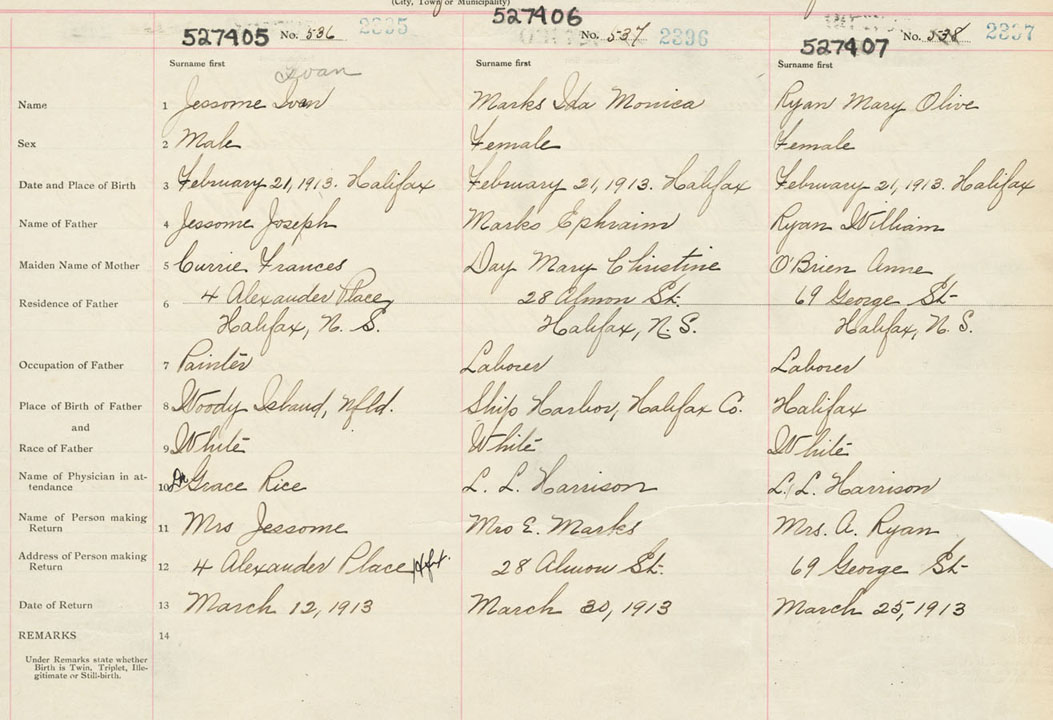 (City, Town or Municipality)
527405 No. 536 2335
527406 No. 537 2396
527407 No. 538 2337
Surname first Surname first Surname first
Ivan
Name 1 Jessome Ivan Marks Ida Monica Ryan Mary Olive
Sex 2 Male Female Female
Date and Place of Birth 3 February 21, 1913. Halifax February 21, 1913. Halifax February 21, 1913. Halifax
Name of Father 4 Jessome Joseph Marks Ephraim Ryan William
Maiden Name of Mother 5 Currie Frances Day Mary Christine O'Brien Anne
Residence of Father 6 4 Alexander Place, 28 Almon St. 69 George St-
Halifax, N. S. Halifax, N. S. Halifax, N. S.
Occupation of Father 7 Painter Laborer Laborer
Place of Birth of Father 8 Woody Island, Nfld. Ship Harbor, Halifax Co. Halifax
and
Race of Father 9 White White White
Name of Physician in at-
tendance 10 Dr Grace Rice L. L. Harrison L. L. Harrison
Name of Person making
Return 11 Mrs Jessome Mrs E. Marks Mrs. A. Ryan
Address of Person making
Return 12 4 Alexander Place, Hfx. 28 Almon St. 69 George St-
Date of Return 13 March 12, 1913 March 30, 1913 March 25, 1913
REMARKS 14
Under Remarks state whether
Birth is Twin, Triplet, Ille-
gitimate or Still-birth.